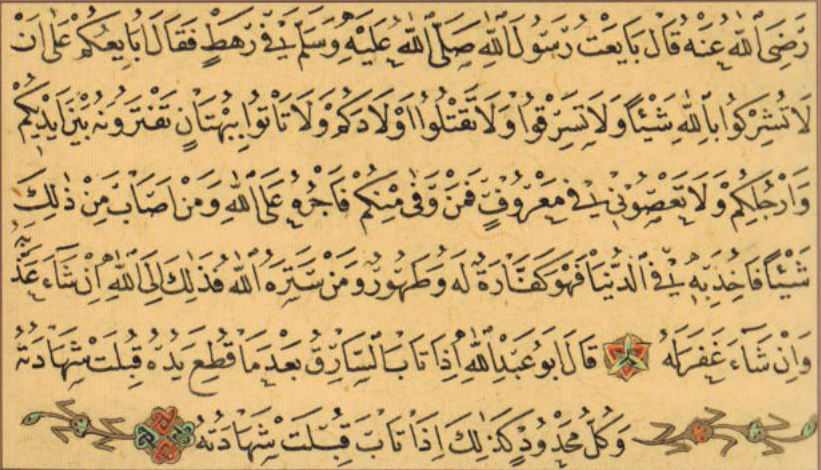 رَضِيَ اللّٰهُ عَنْهُ قَالَ بَايَعْتُ رَسُولَ اللّٰهِ صَلَّى اللّٰهُ عَلَيْهِ وَسَلَّمَ فِي رَهْطٍ فَقَالَ اُبَايِعُكُمْ عَلٰى اَنْ
لَا تُشْرِكُوا بِاللّٰهِ شَيْئًا وَلَا تَسْرِقُوا وَلَا تَقْتُلُوا اَوْلَادَكُمْ وَلَا تَاْتُوا بِبُهْتَانٍ تَفْتَرُونَهُ بَيْنَ اَيْدِيكُمْ
وَاَرْجُلِكُمْ وَلَا تَعْصُونِي فِي مَعْرُوفٍ فَمَنْ وَفٰى مِنْكُمْ فَاَجْرُهُ عَلَى اللّٰهِ وَمَنْ اَصَابَ مِنْ ذٰلِكَ
شَيْئًا فَاُخِذَ بِهِ فِي الدُّنْيَا فَهُوَ كَفَّارَةٌ لَهُ وَطَهُورٌ وَمَنْ سَتَرَهُ اللّٰهُ فَذٰلِكَ اِلَى اللّٰهِ اِنْ شَاءَ عَذَّبَهُ
وَاِنْ شَاءَ غَفَرَ لَهُ قَالَ اَبُو عَبْدِ اللّٰهِ اِذَا تَابَ السَّارِقُ بَعْدَ مَا قُطِعَ يَدُهُ قُبِلَتْ شَهَادَتُهُ
وَكُلُّ مَحْدُودٍ كَذٰلِكَ اِذَا تَابَ قُبِلَتْ شَهَادَتُهُ